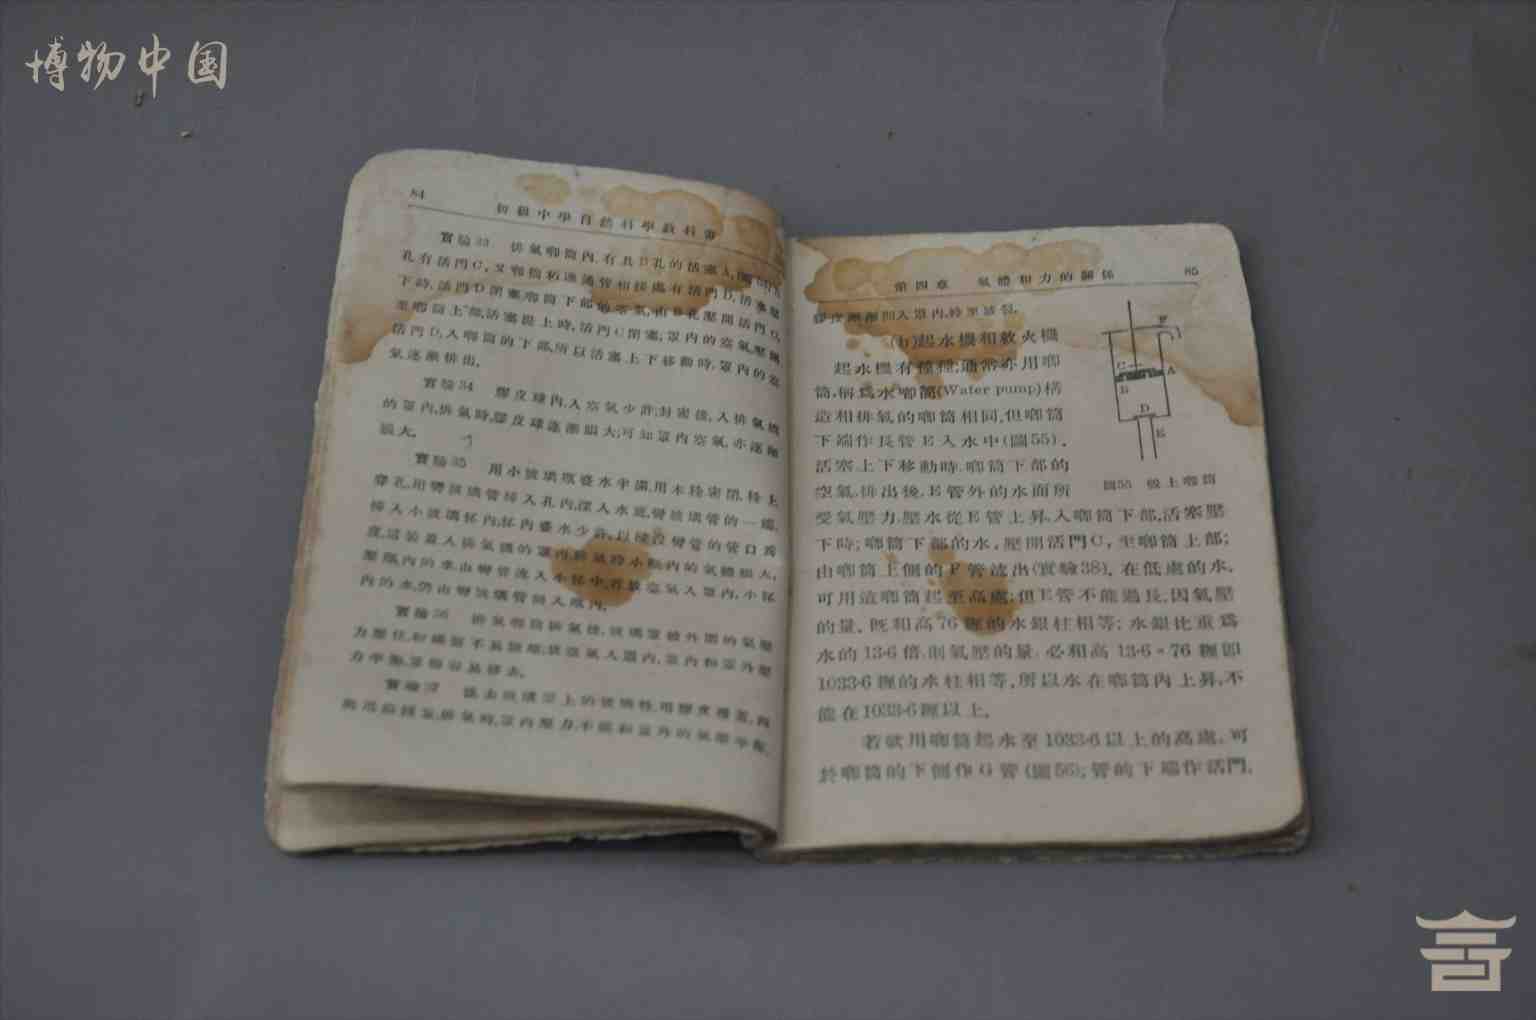 博物中国
84
初級中學自然科學教科書
實驗33 排氣唧筒內,有具B孔的活塞A,
孔有活門C,又唧筒和連通管相接處有活門D,活塞壓
下時,活門D閉塞唧筒下部的空氣,由B孔壓開活門C,
至唧筒上部,活塞提上時,活門C閉塞,罩內的空氣,壓開
活門D,入唧筒的下部,所以活塞上下移動時,罩內的空
氣逐漸排出。
實驗34 膠皮球內,入空氣少許,封密後,入排氣機
的罩內,排氣時,膠皮球逐漸脹大;可知罩內空氣,亦逐漸
脹大。
實驗35 用小玻璃瓶盛水半滿,用木栓密閉,栓上
穿孔,用彎玻璃管插入孔內,深入水底,彎玻璃管的一端,
插入小玻璃杯內,杯內盛水少許,以浸沒彎管的管口爲
度,這裝置入排氣機的罩內,排氣時,小瓶內的氣體脹大,
壓瓶內的水由彎管流入小杯中,若放空氣入罩內,小杯
內的水,仍由彎玻璃管回入瓶內。
實驗36 排氣唧筒排氣後,玻璃罩被外圍的氣壓
力壓住,和
力平衡,罩卽容易移去。
實驗37
第四章 氣體和力的關係 85
(b)起水機和救火機
起水機有種種;通常亦用唧
筒,稱爲水唧筒(Water pump)構
造和排氣的唧筒相同,但唧筒
下端作長管E入水中(圖55)。
活塞上下移動時,唧筒下部的
空氣,排出後,E管外的水面所
受氣壓力,壓水從E管上昇,入唧筒下部,活塞壓
下時;唧筒下部的水,壓開活門C,至唧筒上部;
由唧筒上側的F管流出(實驗38)。在低處的水,
可用這唧筒起至高處;但E管不能過長,因氣壓
的量,既和高76糎的水銀柱相等;水銀比重爲
水的13·6倍,則氣壓的量,必和高13·6×76糎卽
1033·6糎的水柱相等,所以水在唧筒內上昇,不
能在1033·6糎以上。
若欲用唧筒起水至1033·6以上的高處,可
於唧筒的下側作G管(圖56);管的下端作活門,
F
C
A
B
D
E
圖55 吸上唧筒